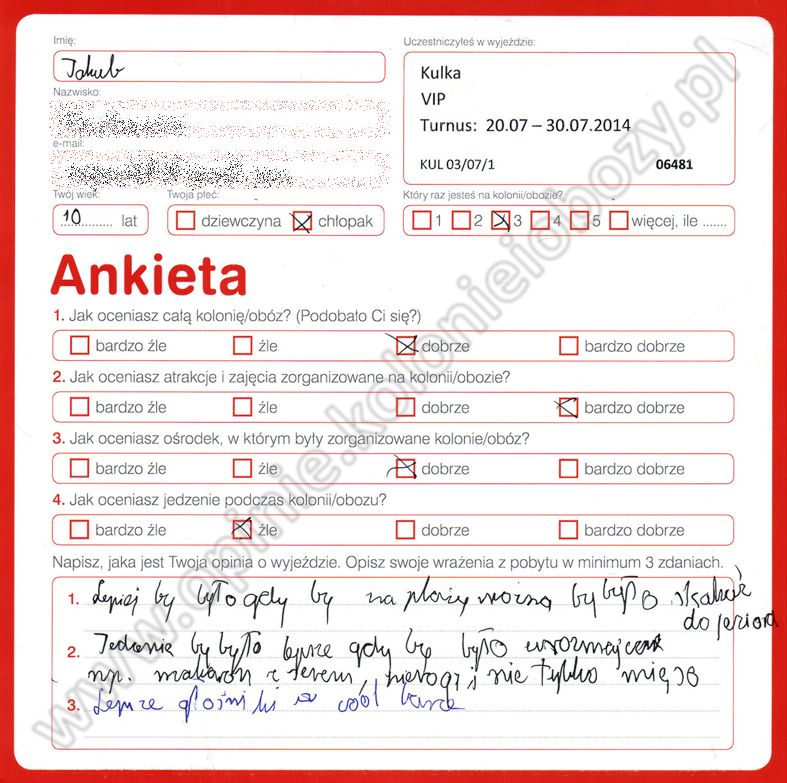 Imię:
Jakub
Uczestniczyłeś w wyjeździe:
Kulka
VIP
Turnus: 20.07 – 30.07.2014
KUL 03/07/1 06481
Nazwisko:
e-mail:
Twój wiek:
10 lat
Twoja płeć:
dziewczyna chłopak
Który raz jesteś na kolonii/obozie?
1 2 3 4 5 więcej, ile .......
Ankieta
1. Jak oceniasz całą kolonię/obóz? (Podobało Ci się?)
bardzo źle źle dobrze bardzo dobrze
2. Jak oceniasz atrakcje i zajęcia zorganizowane na kolonii/obozie?
bardzo źle źle dobrze bardzo dobrze
3. Jak oceniasz ośrodek, w którym były zorganizowane kolonie/obóz?
bardzo źle źle dobrze bardzo dobrze
4. Jak oceniasz jedzenie podczas kolonii/obozu?
bardzo źle źle dobrze bardzo dobrze
Napisz, jaka jest Twoja opinia o wyjeździe. Opisz swoje wrażenia z pobytu w minimum 3 zdaniach.
1. Lepiej by było gdy by na plaży można by było skakać
do jeziora
2. Jedzenie by było lepsze gdy by było urozmajcone
np. makaron z serem, pierogi i nie tylko mięso
3. Lepsze głośniki w cool
www.opinie.kolonieiobozy.pl